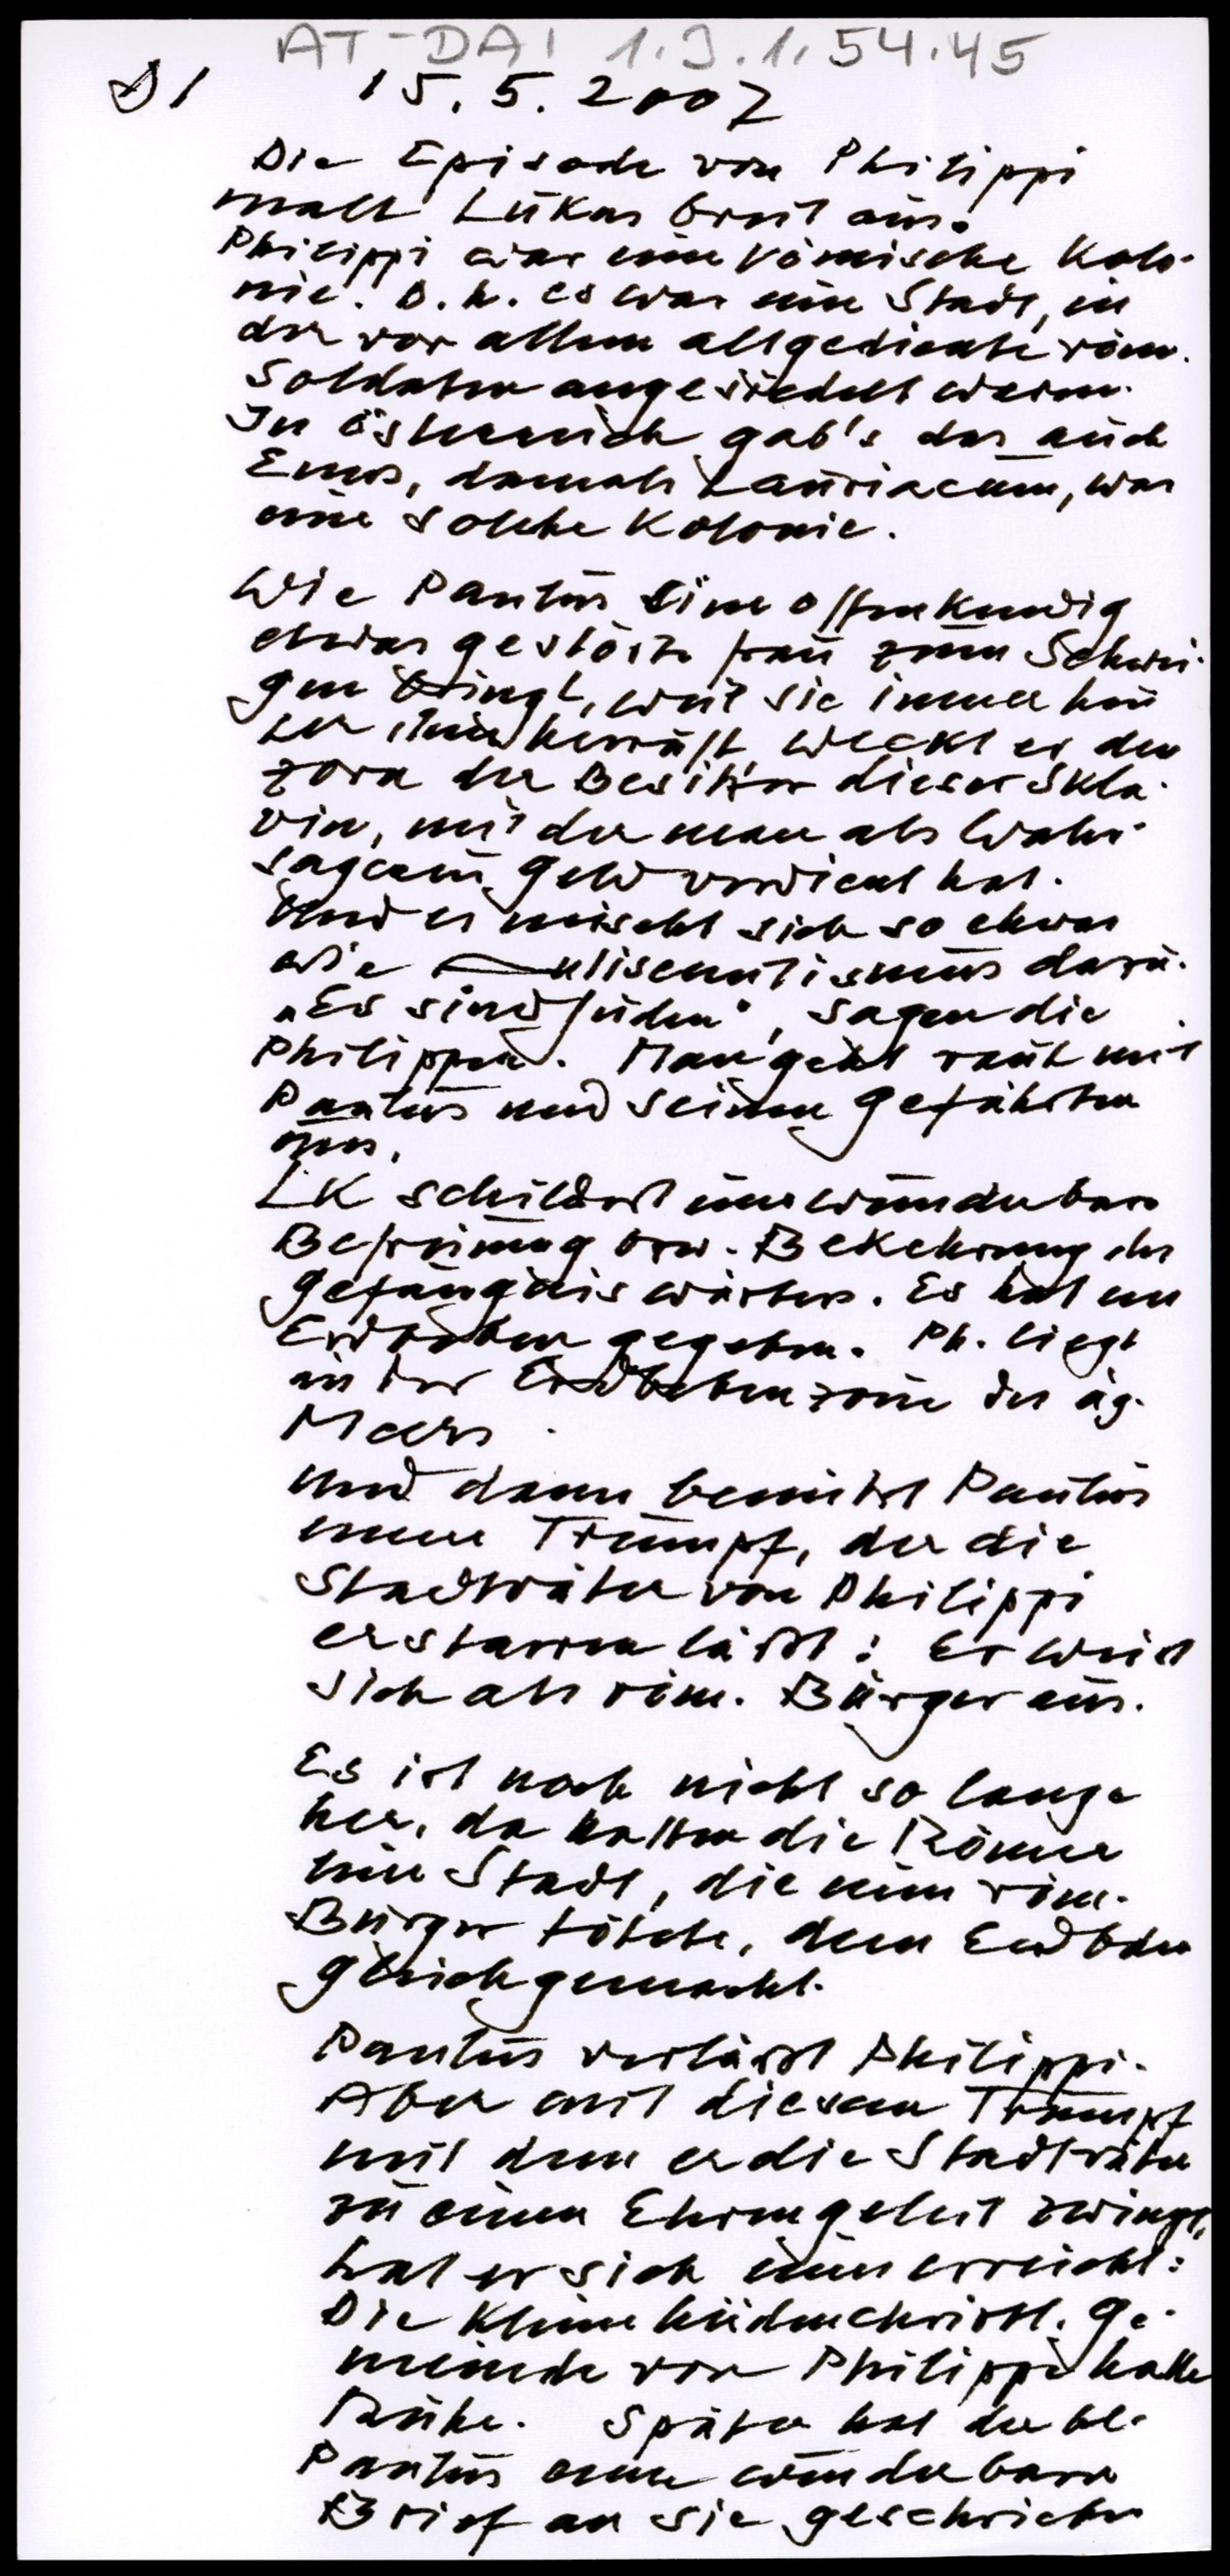 AT-DAI 1.3.1.54.45
DI 15.5.2007
Die Episode von Philippi
malt Lukas breit aus.
Philippi war eine römische Kolo-
nie. D.h. es war eine Stadt, in
der vor allem altgediente röm.
Soldaten angesiedelt waren.
In Österreich gab's das auch
Enns, damals Lauriacum, war
eine solche Kolonie.
Wie Paulus eine offenkundig
etwas gestörte Frau zum Schwei-
gen bringt, weil sie immer hin
ter ihm herruft weckt er den
Zorn der Besitzer dieser Skla-
vin, mit der man als Wahr-
sagerin Geld verdient hat.
Und es mischt sich so etwas
wie Antisemitismus dazu.
„Es sind Juden", sagen die
Philipper. Man geht rauh mit
Paulus und seinen Gefährten
um.
LK schildert eine wunderbare
Befreiung bzw. Bekehrung des
Gefängniswärters. Es hat ein
Erdbeben gegeben. Ph. liegt
in der Erdbebenzone des äg.
Meers.
Und dann benützt Paulus
einen Trumpf, der die
Stadträte von Philippi
erstarren läßt: Er weist
sich als röm. Bürger aus.
Es ist noch nicht so lange
her, da hatten die Römer
eine Stadt, die einen röm.
Bürger tötete, dem Erdboden
gleichgemacht.
Paulus verlässt Philippi.
Aber mit diesem Trumpf
mit dem er die Stadträte
zu einem Ehrengeleit zwingt,
hat er sich eines erreicht:
Die kleine heidenchristl. Ge-
meinde von Philippi hatte
Ruhe. Später hat der hl.
Paulus einen wunderbaren
Brief an sie geschrieben